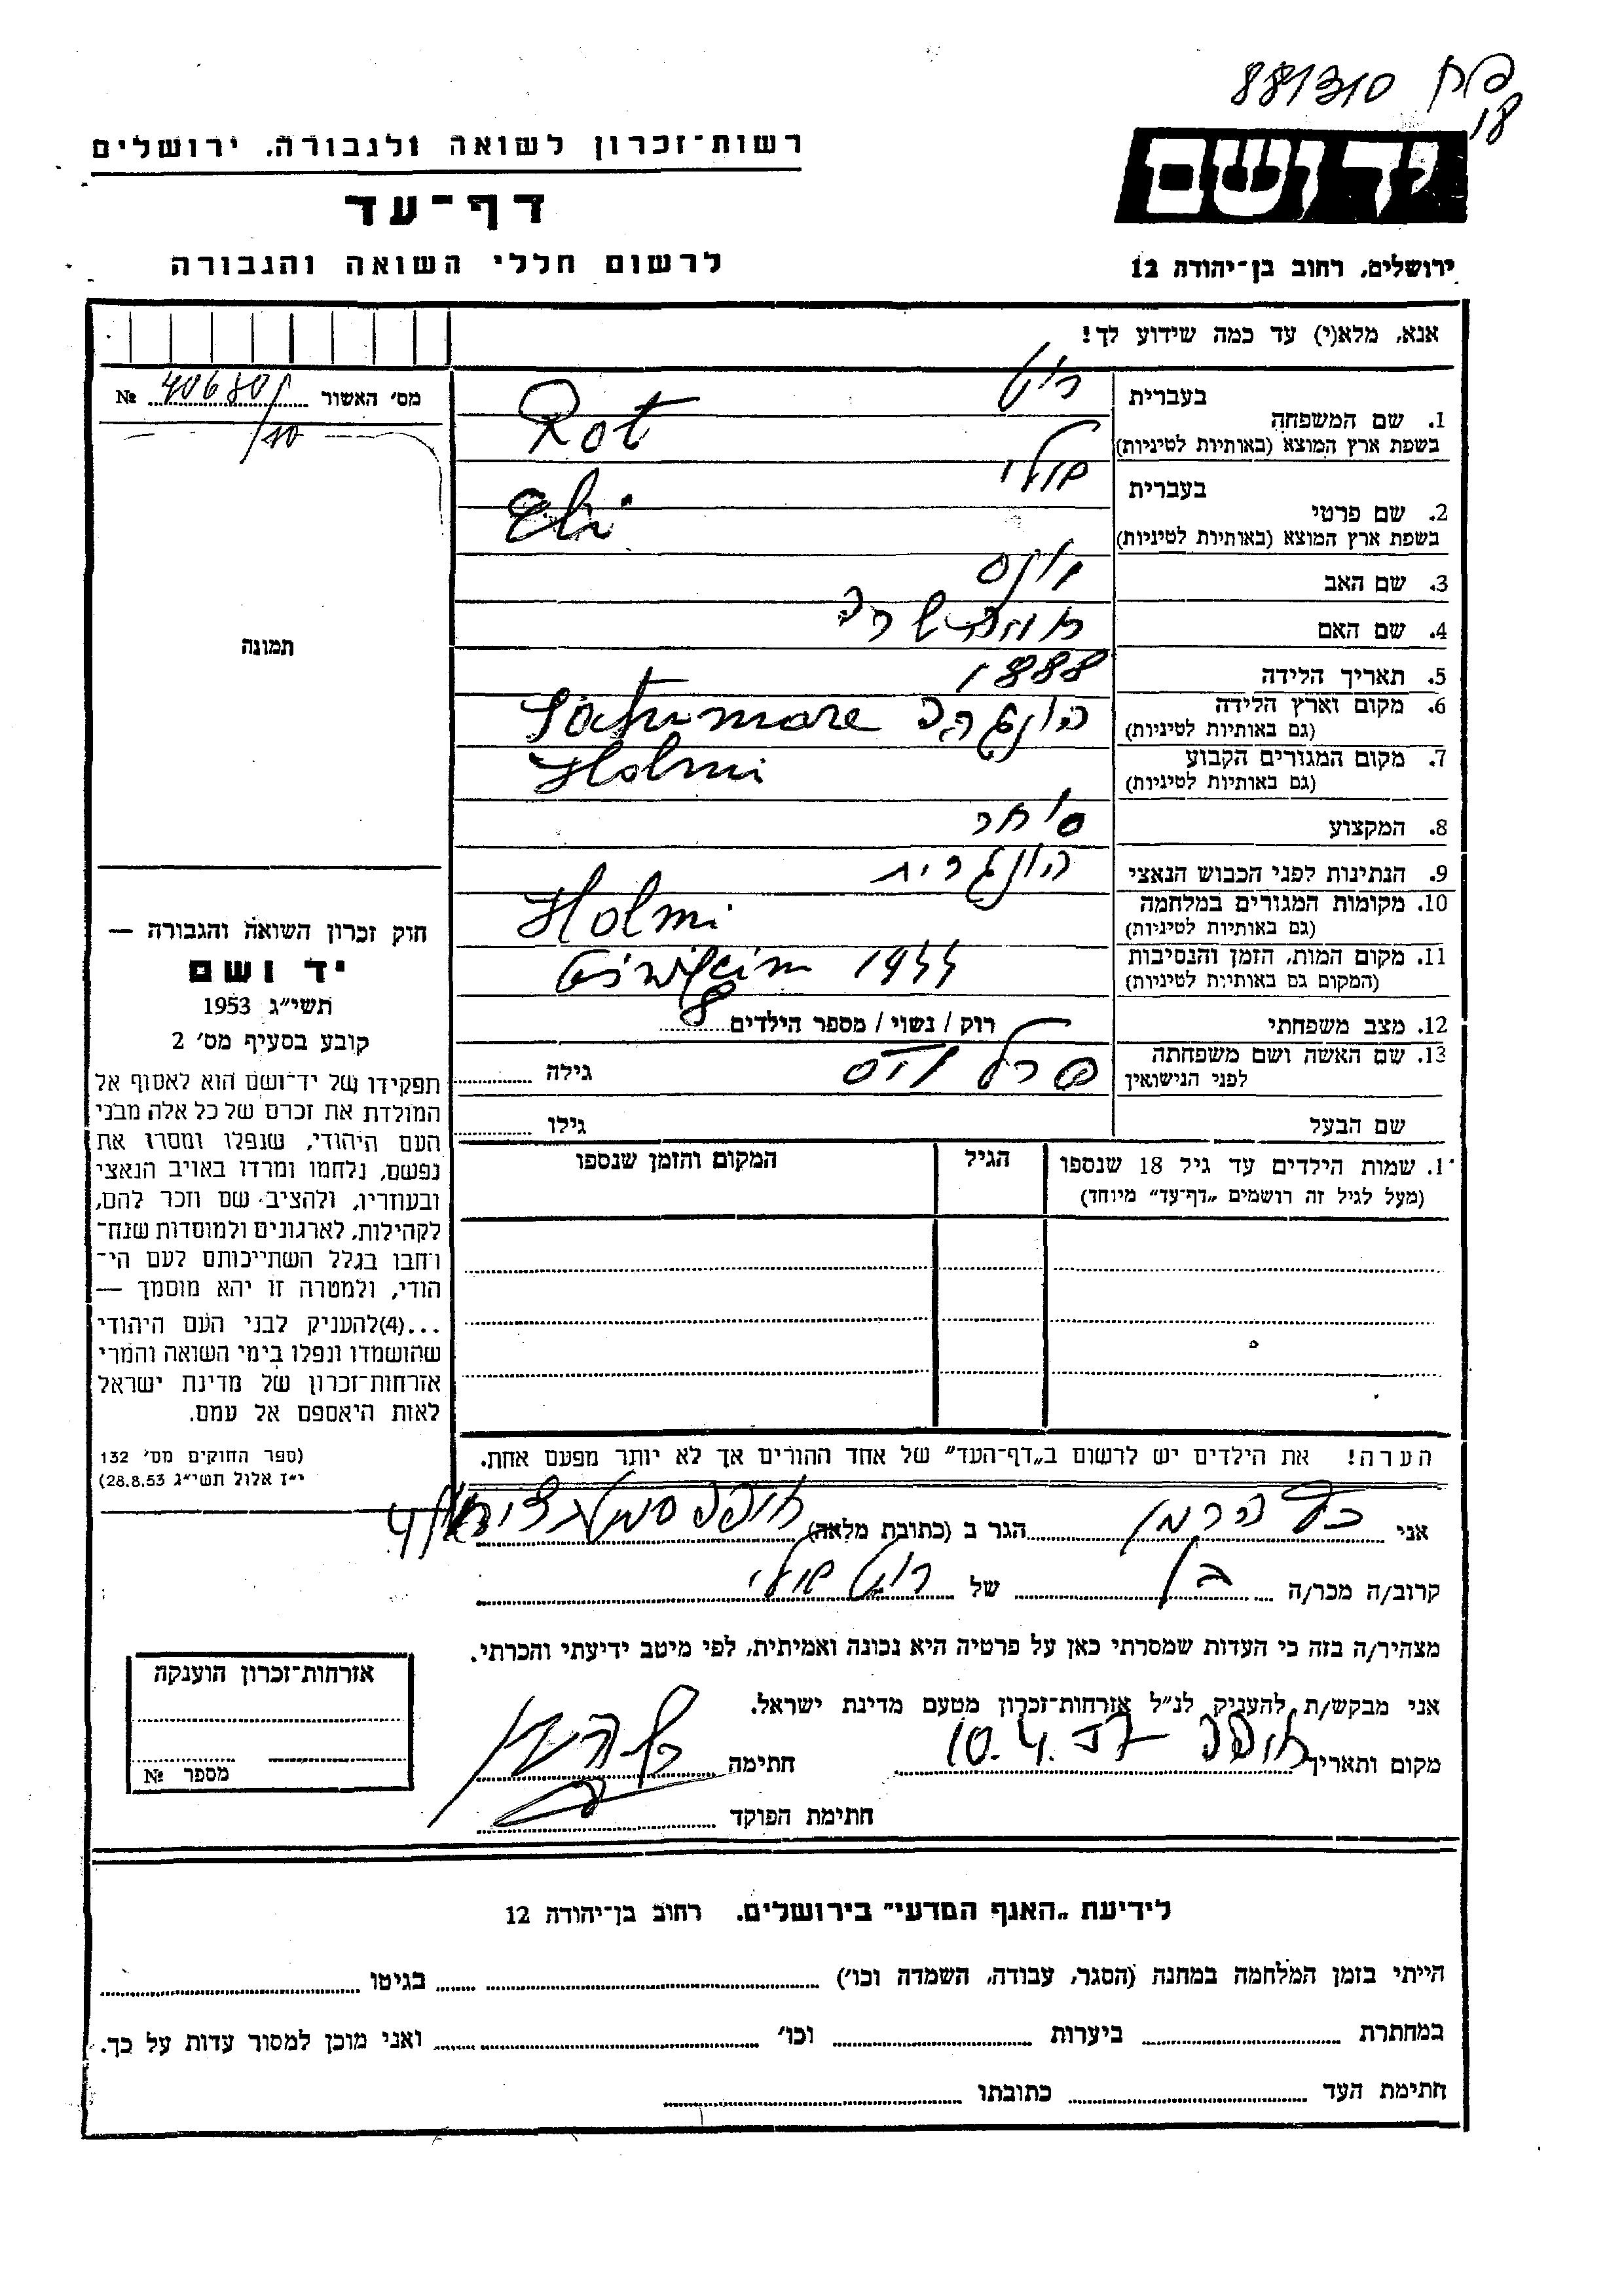 881310
18
רשות־זכרון לשואה ולגבורה. ירושלים
יד ושם
דף־עד
לרשום חללי השואה והגבורה
ירושלים, רחוב בן־יהודה 12
אנא, מלא(י) עד כמה שידוע לך!
מס׳ האשור № 406801
/10
תמונה
בעברית רוט
1. שם המשפחה
בשפת ארץ המוצא (באותיות לטיניות) Rot
בעברית
2. שם פרטי
בשפת ארץ המוצא (באותיות לטיניות)
3. שם האב
4. שם האם
5. תאריך הלידה 1888
6. מקום וארץ הלידה הונגריה Satumare
(גם באותיות לטיניות)
7. מקום המגורים הקבוע Holmi
(גם באותיות לטיניות)
8. המקצוע סוחר
9. הנתינות לפני הכבוש הנאצי הונגרית
10. מקומות המגורים במלחמה Holmi
(גם באותיות לטיניות)
11. מקום המות, הזמן והנסיבות 1944
(המקום גם באותיות לטיניות)
12. מצב משפחתי רוק / נשוי / מספר הילדים 8
13. שם האשה ושם משפחתה
לפני הנישואין גילה
שם הבעל גילו
1. שמות הילדים עד גיל 18 שנספו הגיל המקום והזמן שנספו
(מעל לגיל זה רושמים „דף־עד״ מיוחד)
הערה! את הילדים יש לרשום ב„דף־העד״ של אחד ההורים אך לא יותר מפעם אחת.
חוק זכרון השואה והגבורה —
יד ושם
תשי״ג 1953
קובע בסעיף מס׳ 2
תפקידו של יד־ושם הוא לאסוף אל
המולדת את זכרם של כל אלה מבני
העם היהודי, שנפלו ומסרו את
נפשם, נלחמו ומרדו באויב הנאצי
ובעוזריו, ולהציב שם וזכר להם,
לקהילות, לארגונים ולמוסדות שנח־
רחבו בגלל השתייכותם לעם הי־
הודי, ולמטרה זו יהא מוסמך —
...(4)להעניק לבני העם היהודי
שהושמדו ונפלו בימי השואה והמרי
אזרחות־זכרון של מדינת ישראל
לאות היאספם אל עמם.
(ספר החוקים מס׳ 132
י״ז אלול תשי״ג 28.8.53)
אני הגר ב (כתובת מלאה) חיפה
קרוב/ה מכר/ה בן של רוט
מצהיר/ה בזה כי העדות שמסרתי כאן על פרטיה היא נכונה ואמיתית, לפי מיטב ידיעתי והכרתי.
אני מבקש/ת להעניק לנ״ל אזרחות־זכרון מטעם מדינת ישראל.
מקום ותאריך חיפה 10.4.57 חתימה
חתימת הפוקד
אזרחות־זכרון הוענקה
מספר №
לידיעת „האגף המדעי״ בירושלים. רחוב בן־יהודה 12
הייתי בזמן המלחמה במחנה (הסגר, עבודה, השמדה וכו׳) בגיטו
במחתרת ביערות וכו׳ ואני מוכן למסור עדות על כך.
חתימת העד כתובתו